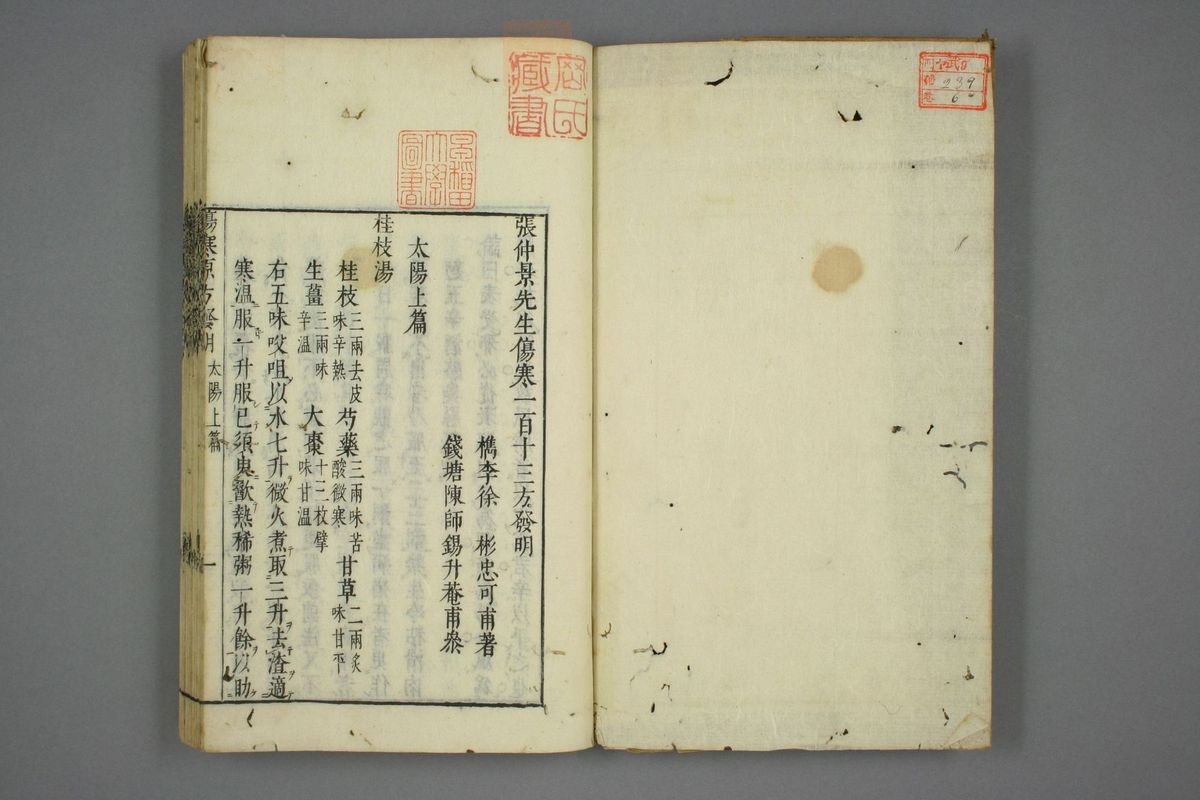 張仲景先生傷寒一百十三方發明
檇李徐彬忠可甫著
錢塘陳師錫升菴甫叅
太陽上篇
桂枝湯
桂枝三兩去皮味辛熱 芍藥三兩味苦酸微寒 甘草二兩炙味甘平
生薑三兩味辛溫 大棗十二枚擘味甘溫
右五味㕮咀以水七升微火煮取三升去渣適
寒溫服一升服已須臾歠熱稀粥一升餘以助
傷寒原方發明 太陽上篇 一
早稻田大學圖書
藏書
239
6